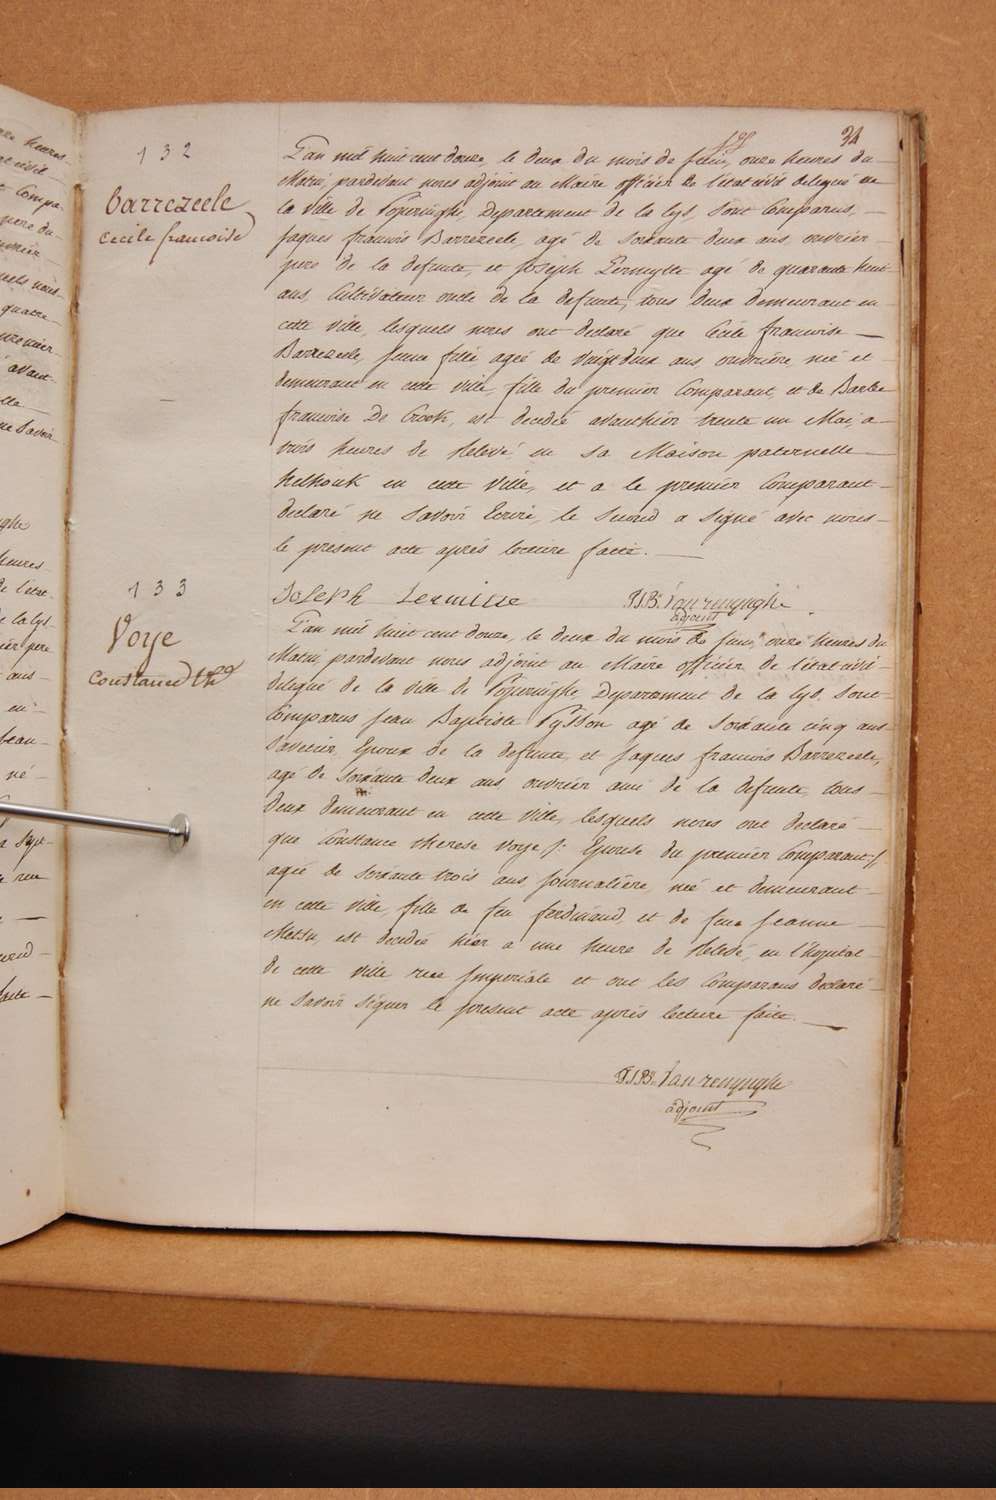 34
132
Barrezeele
Cecile francoise
L'an mil huit cent douze, le deux du mois de Juin, onze heures du
Matin, pardevant nous adjoint au Maire officier de l'etat civil delegué de
la ville de Poperinghe, Departement de la Lys, sont Comparus,
Jaques francois Barrezeele, agé de soixante deux ans, ouvrier
pere de la defunte, et Joseph Lermytte agé de quarante huit
ans, Cultivateur oncle de la defunte, tous deux demeurant en
cette ville, lesquels nous ont declaré que Cecile francoise
Barrezeele, jeune fille, ageé de vingt deux ans, ouvriere, neé et
demeurant en cette ville, fille du premier Comparant, et de Barbe
francoise De Crock, est decedée avanthier trente un Mai, a
trois heures de Relevé, en sa Maison paternelle
helhouk en cette ville, et a le premier Comparant
declaré ne savoir Ecrire, le second a signé avec nous
le present acte aprés lecture faite.
Joseph Lermitte
P.J.B. Vanrenynghe
adjoint
133
Voye
Constance Th
L'an mil huit cent douze, le deux du mois de Juin, onze heures du
Matin, pardevant nous adjoint au Maire officier de l'etat civil
delegué de la ville de Poperinghe Departement de la Lys. sont
Comparus Jean Baptiste Tysson agé de soixante cinq ans
Savetier, Epoux de la defunte, et Jaques francois Barrezeele,
agé de soixante deux ans, ouvrier ami de la defunte, tous
deux demeurant en cette ville, lesquels nous ont declaré
que Constance therese Voye /: Epouse du premier Comparant :/
ageé de soixante trois ans, Journaliere, neé et demeurant
en cette ville, fille de feu ferdinand, et de feue Jeanne
Metsu, est decedée hier a une heure de Relevé, en l'hopital
de cette ville rue Imperiale et ont les Comparans declaré
ne savoir signer le present acte aprés lecture faite.
P.J.B. Vanrenynghe
adjoint